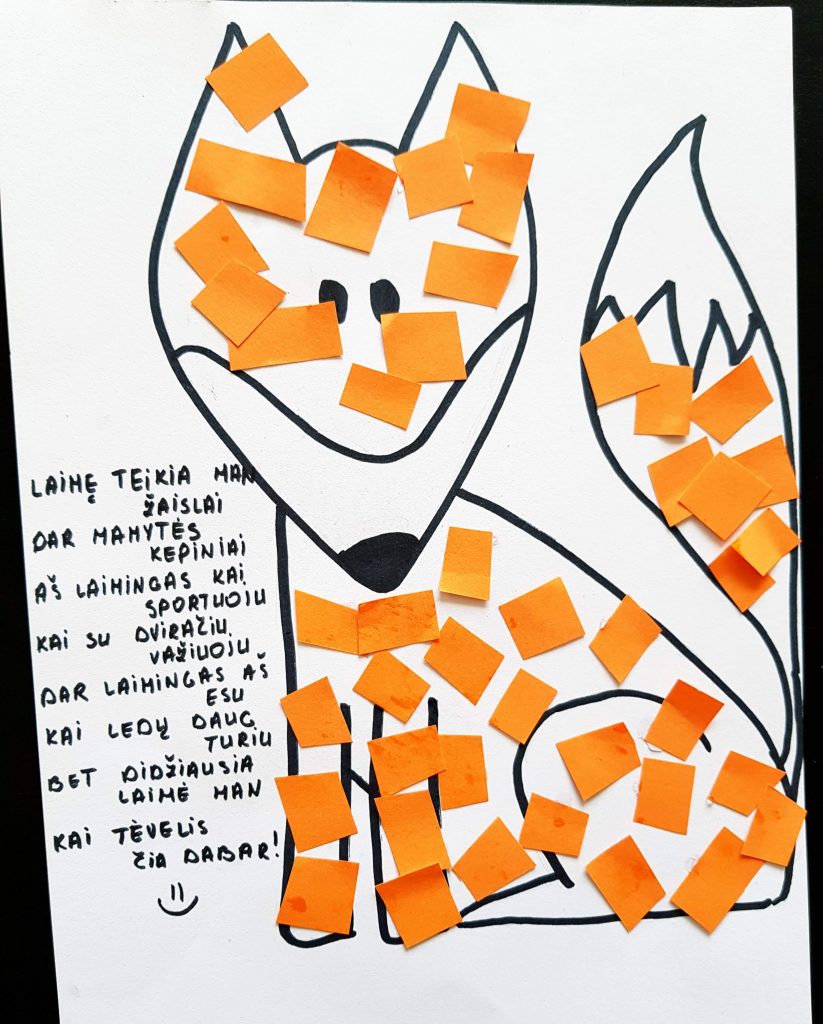 LAIMĘ TEIKIA MAN
ŽAISLAI
DAR MAMYTĖS
KEPINIAI
AŠ LAIMINGAS KAI
SPORTUOJU
KAI SU DVIRAČIU
VAŽIUOJU
DAR LAIMINGAS AŠ
ESU
KAI LEDŲ DAUG
TURIU
BET DIDŽIAUSIA
LAIMĖ MAN
KAI TĖVELIS
ČIA DABAR!